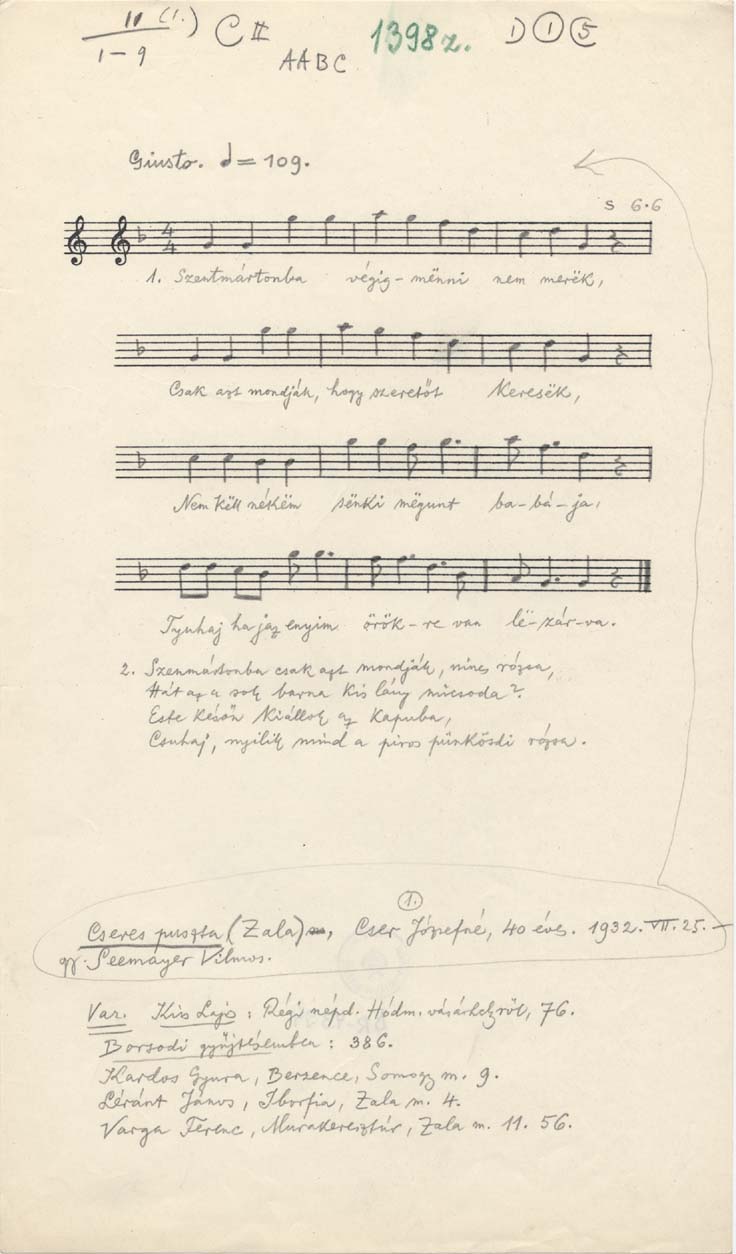 11 (1.)
1–9
C II
AABC
1398z.
D 1 5
Giusto. = 109.
s 6.6
4
4
1. Szentmártonba végig–mënni nem merëk,
Csak azt mondják, hogy szeretőt keresëk,
Nem këll nékëm sënki mëgunt ba–bá–ja,
Tyuhaj ha jaz enyim örök–re van lë–zár–va.
2. Szenmártonba csak azt mondják, nincs rózsa,
Hát az a sok barna kis lány micsoda?
Este későn kiállok az kapuba,
Csuhaj, nyílik mind a piros pünkösdi rózsa.
1.
Cseres puszta (Zala), Cser Józsefné, 40 éves. 1932. VII. 25.–
gy. Seemayer Vilmos.
Var. Kis Lajo : Régi népd. Hódm. vásárhelyről, 76.
Borsodi gyűjtésemben : 386.
Kardos Gyura, Berzence, Somogy m. 9.
Léránt János, Iborfia, Zala m. 4.
Varga Ferenc, Murakeresztúr, Zala m. 11. 56.